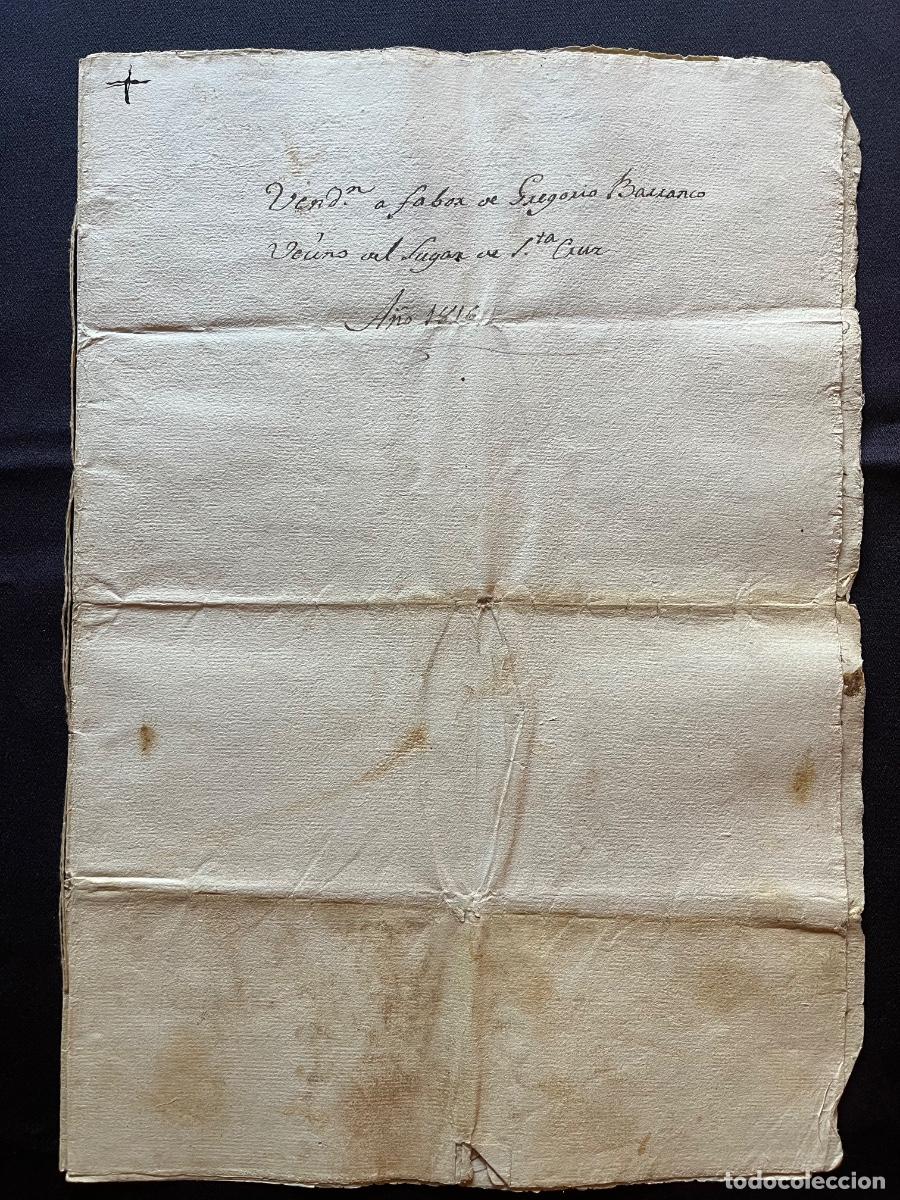 Vend.n a fabor de Gregorio Barranco
Vecino del Lugar de S.ta Cruz
Año 1816
todocoleccion